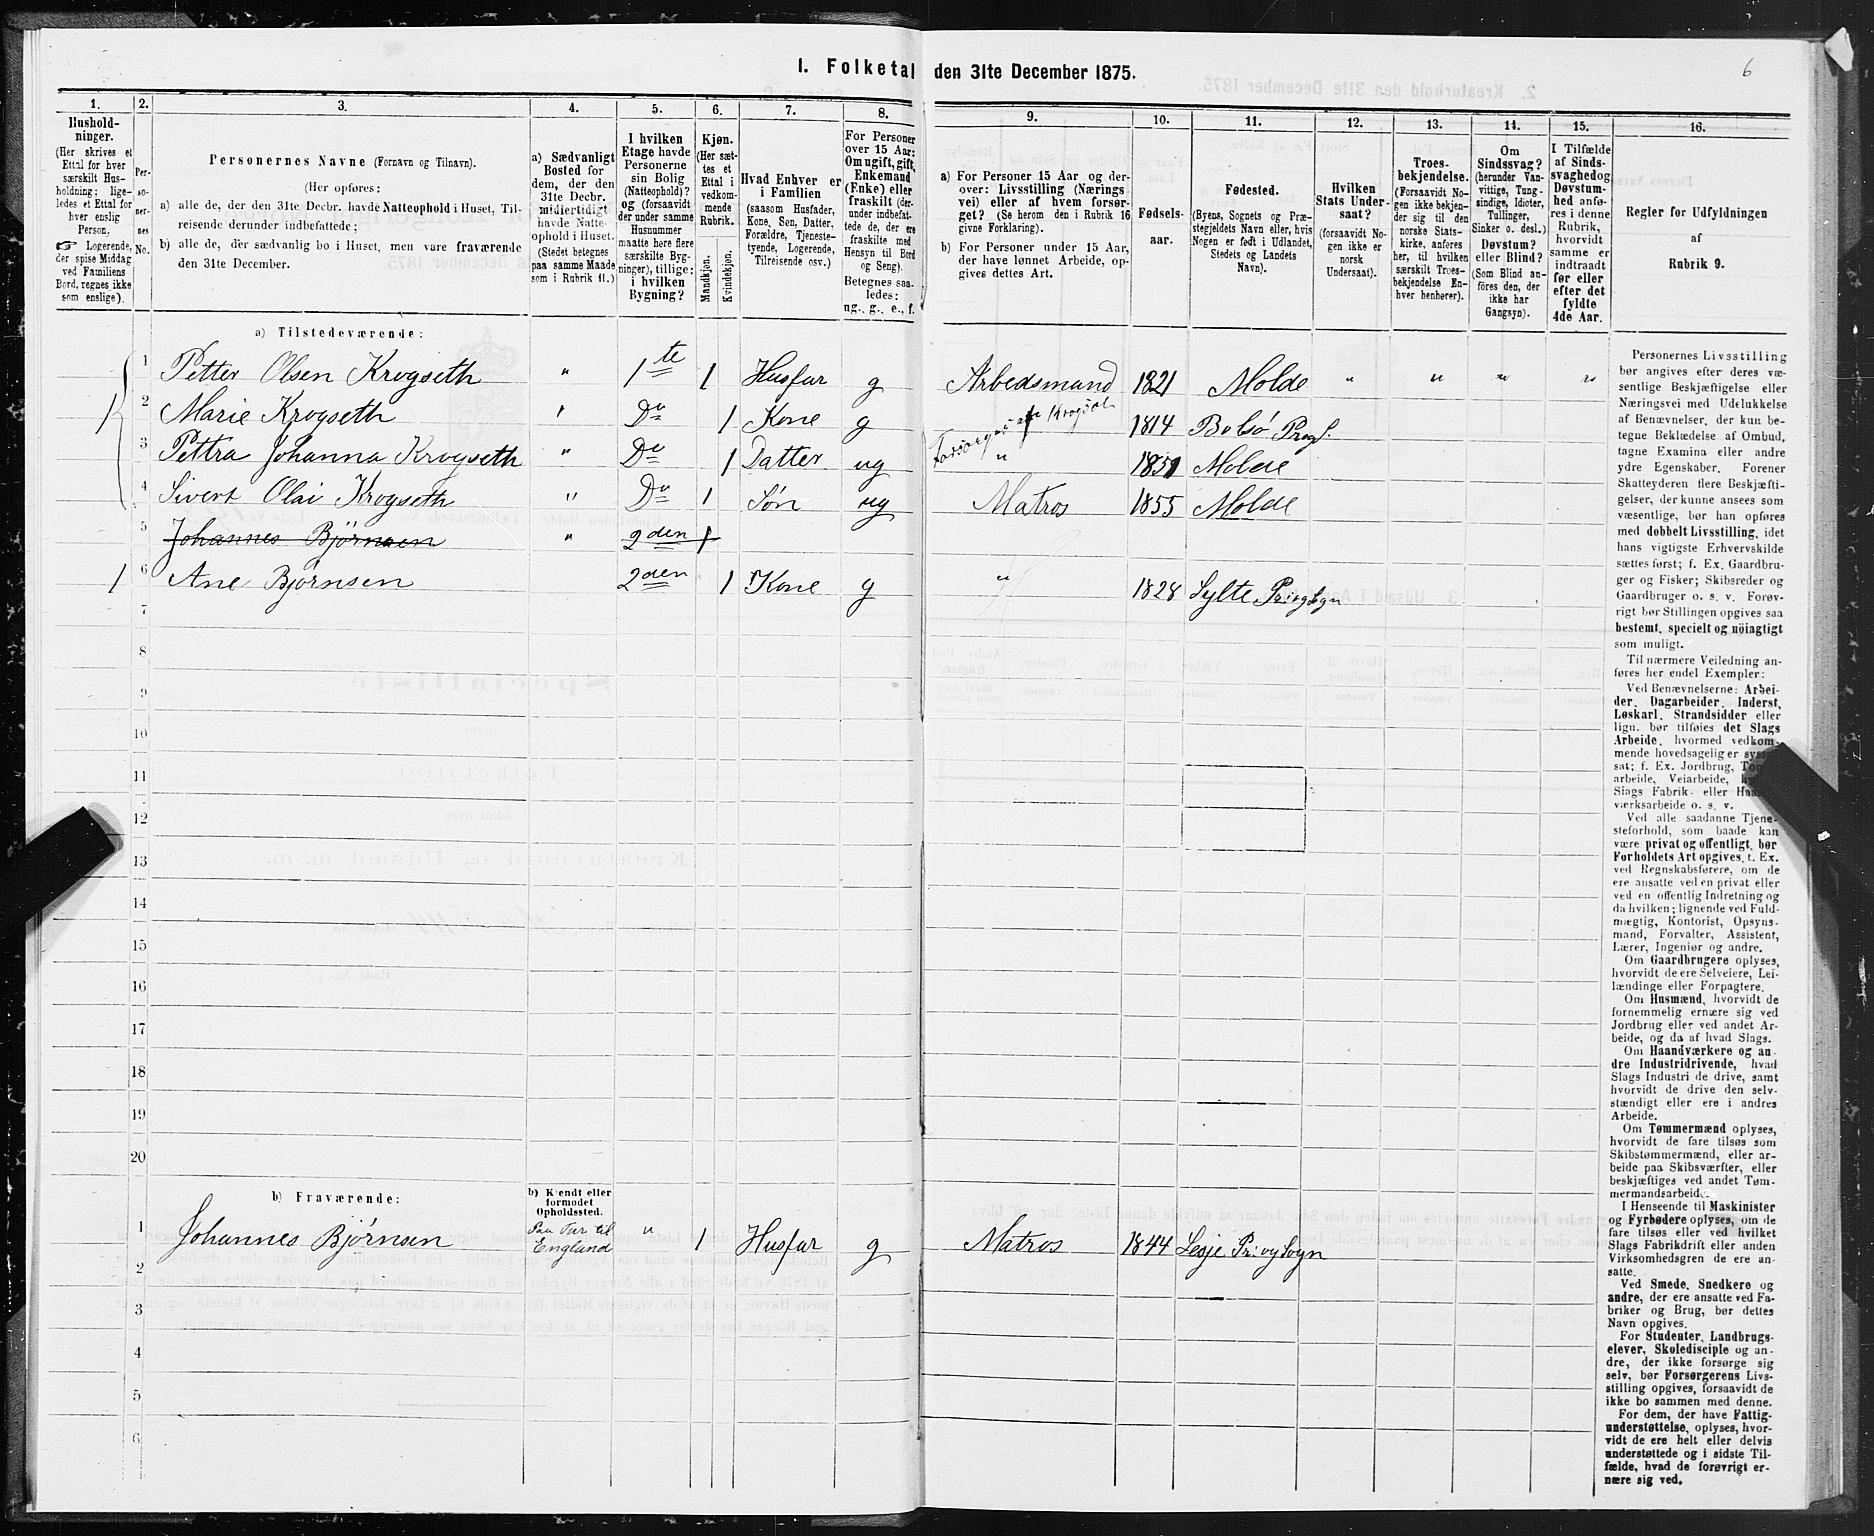 I. Folketal den 31te December 1875.
6
1.
Hushold-
ninger.
(Her skrives et
Ettal for hver
særskilt Hus-
holdning; lige-
ledes et Ettal for
hver enslig
Person.
☞ Logerende,
der spise Middag
ved Familiens
Bord, regnes ikke
som enslige).
2.
Per-
so-
ner-
nes
No.
3.
Personernes Navne (Fornavn og Tilnavn).
(Her opføres:
a) alle de, der den 31te Decbr. havde Natteophold i Huset, Til-
reisende derunder indbefattede;
b) alle de, der sædvanlig bo i Huset, men vare fraværende
den 31te December.
4.
a) Sædvanligt
Bosted for
dem, der den
31te Decbr.
midlertidigt
havde Natte-
ophold i Huset.
(Stedet betegnes
paa samme Maade
som i Rubrik 11.)
5.
I hvilken
Etage havde
Personerne
sin Bolig
(Natteophold)?
og (forsaavidt
der under samme
Husnummer
maatte høre flere
særskilte Byg-
ninger), tillige:
i hvilken
Bygning?
6.
Kjøn.
(Her sæt-
tes et
Ettal i
vedkom-
mende
Rubrik.
Mandkjøn.
Kvindekjøn.
7.
Hvad Enhver er
i Familien
(saasom Husfader,
Kone, Søn, Datter,
Forældre, Tjeneste-
tyende, Logerende,
Tilreisende osv.)
8.
For Personer
over 15 Aar:
Om ugift, gift,
Enkemand
(Enke) eller
fraskilt (der-
under indbefat-
tede de, der ere
fraskilte med
Hensyn til Bord
og Seng).
Betegnes saa-
ledes:
ug., g., e., f.
9.
a) For Personer 15 Aar og der-
over: Livsstilling (Nærings
vei) eller af hvem forsør-
get? (Se herom den i Rubrik 16
givne Forklaring).
b) For Personer under 15 Aar,
der have lønnet Arbeide, op-
gives dettes Art.
10.
Fødsels-
aar.
11.
Fødested.
(Byens, Sognets og Præ-
stegjeldets Navn eller, hvis
Nogen er født i Udlandet,
Stedets og Landets
Navn).
12.
Hvilken
Stats Under-
saat?
(forsaavidt No-
gen ikke er
norsk
Undersaat).
13.
Troes-
bekjendelse.
(Forsaavidt No-
gen ikke bekjen-
der sig til den
norske Stats-
kirke, anføres
her, til hvilken
særskilt Troes-
bekjendelse En-
hver henhører).
14.
Om
Sindssvag?
(herunder Van-
vittige, Tung-
sindige, Idioter,
Tullinger,
Sinker o. desl.)
Døvstum?
eller Blind?
(Som Blind an-
føres den, der
ikke har
Gangsyn).
15.
I Tilfælde
af Sinds-
svaghed og
Døvstum-
hed anfø-
res i denne
Rubrik,
hvorvidt
samme er
indtraadt
før eller
efter det
fyldte
4de Aar.
16.
Regler for Udfyldningen
af
Rubrik 9.
a) Tilstedeværende:
1 1 Petter Olsen Krogseth " 1te 1 Husfar g Arbedsmand 1821 Molde " " " "
2 Marie Krogseth " Do 1 Kone g 1814 Bolsø Prgl.
3 Pettra Johanna Krogseth " Do 1 Datter ug " 1851 Molde
4 Sivert Olai Krogseth " Do 1 Søn ug Matros 1855 Molde
5 Johannes Bjørnsen " 2den 1
1 6 Ane Bjørnsen 2den 1 Kone g " 1828 Sylte Pr. og Sogn
7
8
9
10
11
12
13
14
15
16
17
18
19
20
b) Fraværende:
b) Kjendt eller
formodet
Opholdssted.
1 Johannes Bjørnsen Paa Tur til England " 1 Husfar g Matros 1844 Lesje Pr. og Sogn
2
3
4
5
6
Personernes Livsstilling
bør angives efter deres væ-
sentlige Beskjæftigelse eller
Næringsvei med Udelukkelse
af Benævnelser, der kun be-
tegne Beklædelse af Ombud,
tagne Examina eller andre
ydre Egenskaber. Forener
Skatteyderen flere Beskjæfti-
gelser, der kunne ansees som
væsentlige, bør han opføres
med dobbelt Livsstilling, idet
hans vigtigste Erhvervskilde
sættes først; f. Ex. Gaardbru-
ger og Fisker; Skibsreder og
Gaardbruger o. s. v. Forøv-
rigt bør Stillingen opgives saa
bestemt, specielt og nöiagtigt
som muligt.
Til nærmere Veiledning an-
føres her endel Exempler:
Ved Benævnelserne: Arbei-
der, Dagarbeider, Inderst,
Løskarl, Strandsidder eller
lign. bør tilføies det Slags
Arbeide, hvormed vedkom-
mende hovedsagelig er
sat; f. Ex. Jordbrug,
arbeide, Veiarbeide,
Slags Fabrik- eller
værksarbeide o. s. v.
Ved alle saadanne Tjene-
steforhold, som baade kan
være privat og offentligt, bør
Forholdets Art opgives, f. Ex.
ved Regnskabsførere, om de
ere ansatte ved en privat eller
ved en offentlig Indretning og
da hvilken; lignende ved Fuld-
mægtig, Kontorist, Opsyns-
mand, Forvalter, Assistent,
Lærer, Ingeniør og andre.
Om Gaardbrugere oplyses,
hvorvidt de ere Selveiere, Lei-
lændinge eller Forpagtere.
Om Husmænd, hvorvidt de
fornemmelig ernære sig ved
Jordbrug eller ved andet Ar-
beide, og da af hvad Slags.
Om Haandværkere og an-
dre Industridrivende, hvad
Slags Industri de drive, samt
hvorvidt de drive den selv-
stændigt eller ere i andres
Arbeide.
Om Tømmermænd oplyses,
hvorvidt de fare tilsøs som
Skibstømmermænd, eller ar-
beide paa Skibsværfter, eller
beskjæftiges ved andet Tøm-
mermandsarbeide.
I Henseende til Maskinister
og Fyrbødere oplyses, om de
fare tilsøs eller ved hvilket
Slags Fabrikdrift eller anden
Virksomhedsgren de ere an-
satte.
Ved Smede, Snedkere og
andre, der ere ansatte ved Fa-
briker og Brug, bør dettes
Navn opgives.
For Studenter, Landbrugs-
elever, Skoledisciple og an-
dre, der ikke forsørge sig
selv, bør Forsørgerens Livs-
stilling opgives, forsaavidt de
ikke bo sammen med denne.
For dem, der have Fattig-
understøttelse, oplyses, hvor-
vidt de ere helt eller delvis
understøttede og i sidste Til-
fælde, hvad de forøvrigt er-
nære sig ved.